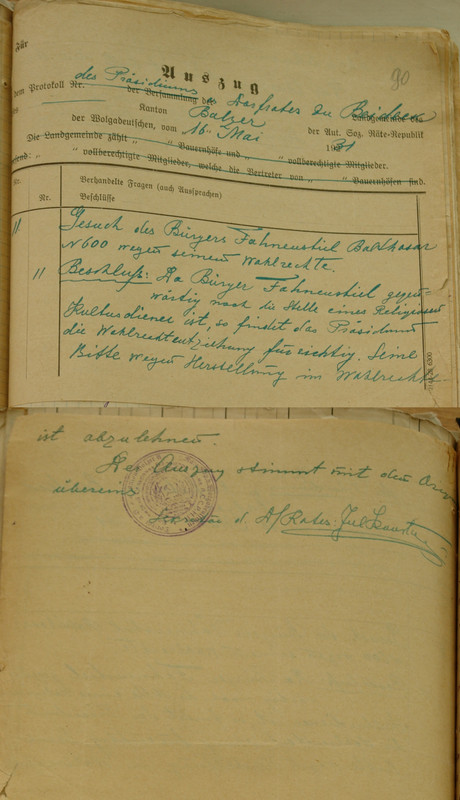 90
Für
Auszug
des Präsidiums
dem Protokoll Nr. der Versammlung des Dorfrates zu Landgemeinde
Kanton Balzer der Aut. Soz. Räte-Republik
der Wolgadeutschen, vom 16. Mai 1931
Die Landgemeinde zählt „ “ Bauernhöfe und „ “ vollberechtigte Mitglieder.
„ “ vollberechtigte Mitglieder, welche die Vertreter von „ “ Bauernhöfen sind.
Nr. Verhandelte Fragen (auch Aussprachen)
Nr. Beschlüsse
11 Gesuch des Bürgers Fahnenstiel Balthasar
N 600 wegen seinem Wahlrechte.
11 Beschluß: Da Bürger Fahnenstiel gegen-
wärtig noch die Stelle eines Religiösen
Kulturdiener ist, so findet das Präsidium
die Wahlrechtentziehung für richtig. Seine
Bitte wegen Herstellung im Wahlrechte
ist abzulehnen.
Der Auszug stimmt mit dem
überein
Sekretär d. D/Rates: